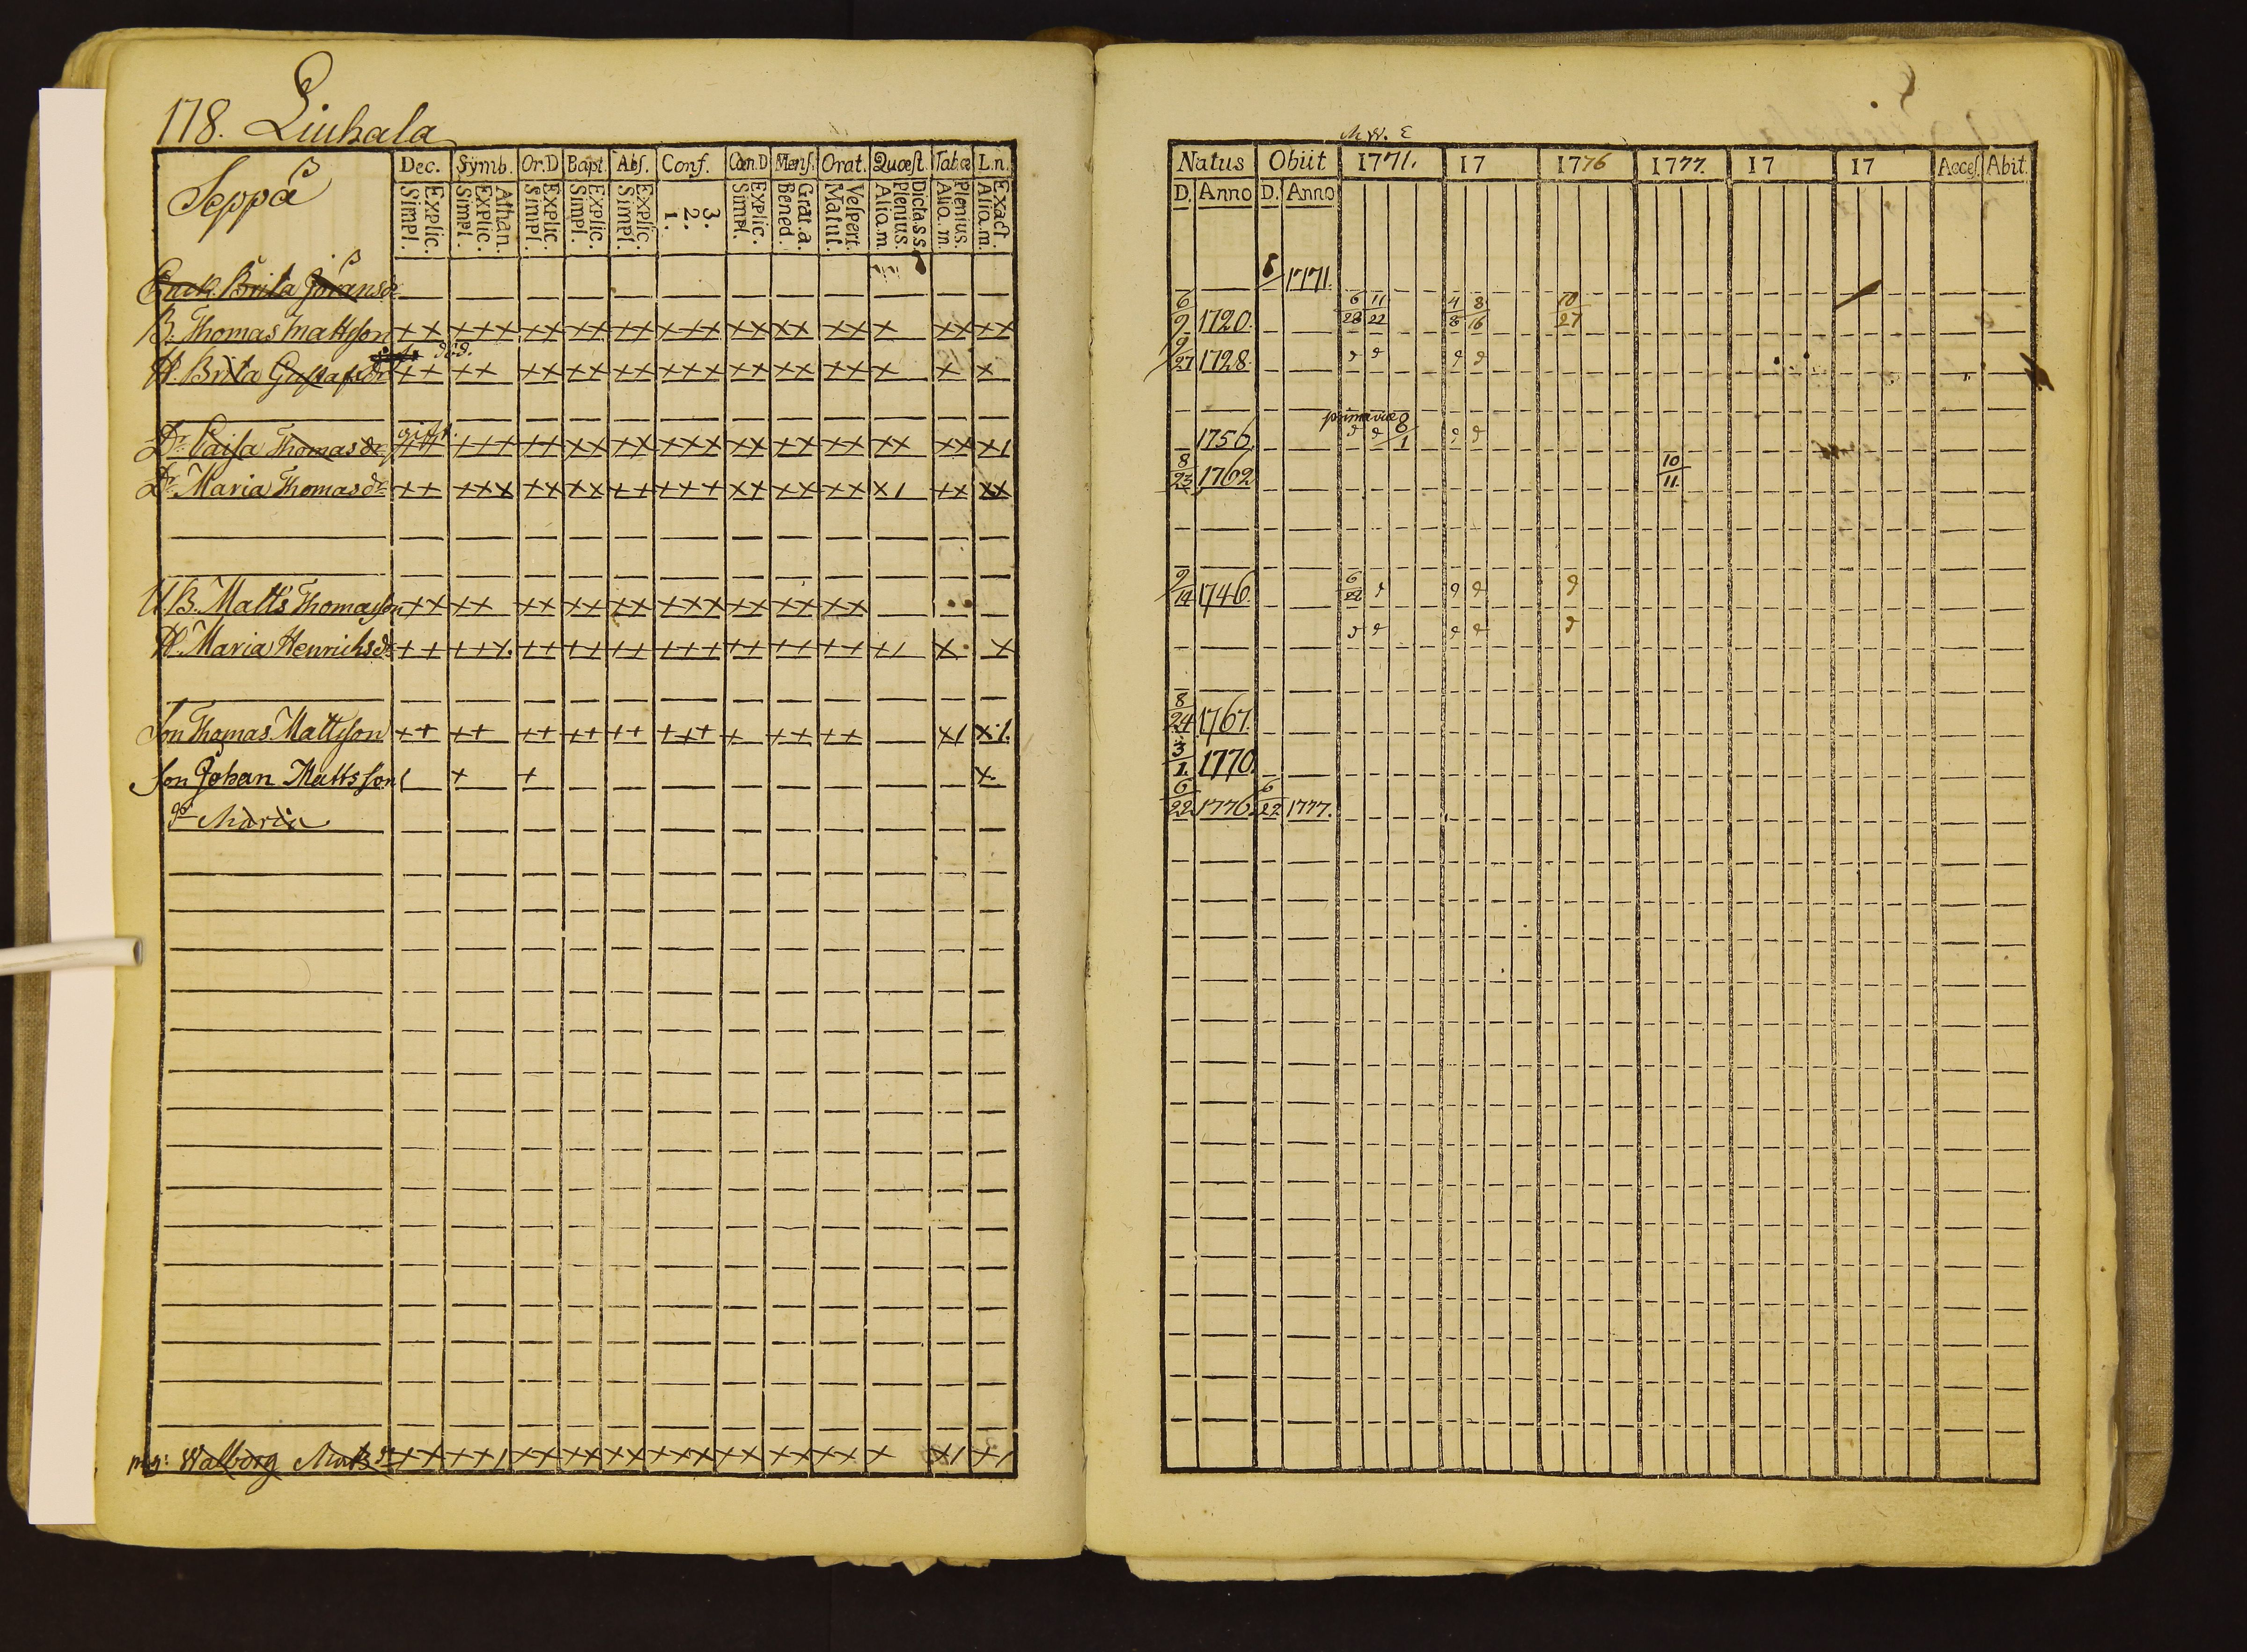 178. Liuhala
Seppä
Dec. Symb. Or.D Bapt. Abs. Conf. Cœn.D Mens. Orat. Quœst. Tab.œ L.n.
Simpl. Explic. Simpl. Explic. Athan. Simpl. Explic. Simpl. Explic. Simpl. Explic. 1. 2. 3. Simpl. Explic. Bened. Grat. a. Matut. Vespert. Alio. m. Plenius. Dicta. s. s. Alio. m. Plenius. Alio. m. Exact.
Enck. Brita Göransdr
B. Thomas Mattsson ++ +++ ++ ++ ++ +++ ++ ++ ++ + ++ ++
död.
H. Brita Gustafsdr ++ ++ ++ ++ ++ +++ ++ ++ ++ + + +
gift.
Dr Caisa Thomasdr ++ +++ ++ ++ ++ +++ ++ ++ ++ ++ ++ +1
Dr Maria Thomasdr ++ +++ ++ ++ ++ +++ ++ ++ ++ +1 ++ ++
U.B. Matts Thomasson ++ ++ ++ ++ ++ +++ ++ ++ ++
H. Maria Henrichsdr ++ +++ ++ ++ ++ +++ ++ ++ ++ +1 + +
Son Thomas Mattsson ++ ++ ++ ++ ++ +++ + ++ ++ +1 +1
Son Johan Mattsson 1 + + +
Maria
pig: Walborg Matsdr ++ ++1 ++ ++ ++ +++ ++ ++ ++ + +1 +1
Natus Obiit 1771. 17 1776 1777. 17 17 Acces. Abit.
D. Anno D. Anno
1771.
6/9 1720. 6/28 11/22 4/8 8/16 10/27
9/27 1728. d d d d
1756. d d 8/1 d d
8/23 1762 10/11
9/14 1746. 6/22 d d d d
d d d d d
8/24 1767.
3/1. 1770.
6/22 1776. 6/22 1777.